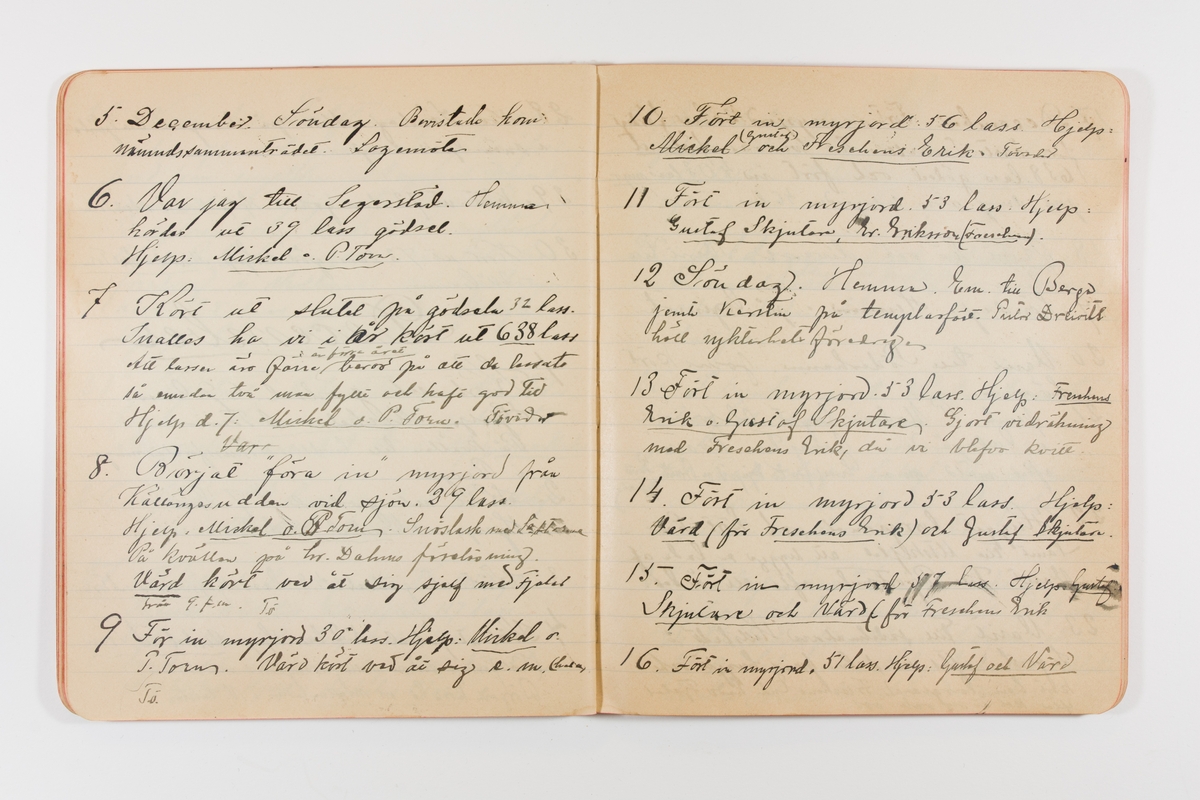 5. December. Söndag. Bevistade kom-
nämndssammanträdet. Logemöte
6. Var jag till Segerstad. Hemma
kördes ut 39 lass gödsel.
Hjelp: Mickel o. P. Torn.
7 Kört ut slutet på gödseln 32 lass.
Inalles ha vi i år kört ut 638 lass
Att lassen äro färre än förra året beror på att de lassats
så emedan två man fyllt och haft god Tid
Hjelp d. 7: Mickel o. P. Torn. Töväder
Var
8. Börjat "föra in" myrjord från
Källängsudden vid sjön. 39 lass.
Hjelp. Mickel o. P Torn. Snöslask med
På kvällen på hr. Dahms föreläsning.
Värd kört ved åt sig sjelf med Fjalel
från 9. f.m. Tö
9 För in myrjord 30 lass. Hjelp: Mickel o.
P. Torn. Värd kört ved åt sig e. m.
Tö.
10. Fört in myrjord. 56 lass. Hjelp:
Mickel (Gustaf) och Freschens Erik. Töväder
11 Fört in myrjord. 53 lass. Hjelp:
Gustaf Skjutare, Er. Eriksson (Freschens).
12 Söndag. Hemma. Em. till Berga
jemte Kerstin på templarföst.
höll nykterhetsföredrag
13 Fört in myrjord. 53 lass. Hjelp: Freschens
Erik o. Gustaf Skjutare. Gjort vidräkning
med Freschens Erik, då vi blefvo kvitt.
14. Fört in myrjord 53 lass. Hjelp:
Värd (för Freschens Erik) och Gustaf Skjutare.
15. Fört in myrjord 57 lass. Hjelp. Gustaf
Skjutare och Värd (för Freschens Erik
16. Fört in myrjord. 51 lass. Hjelp: Gustaf och Värd